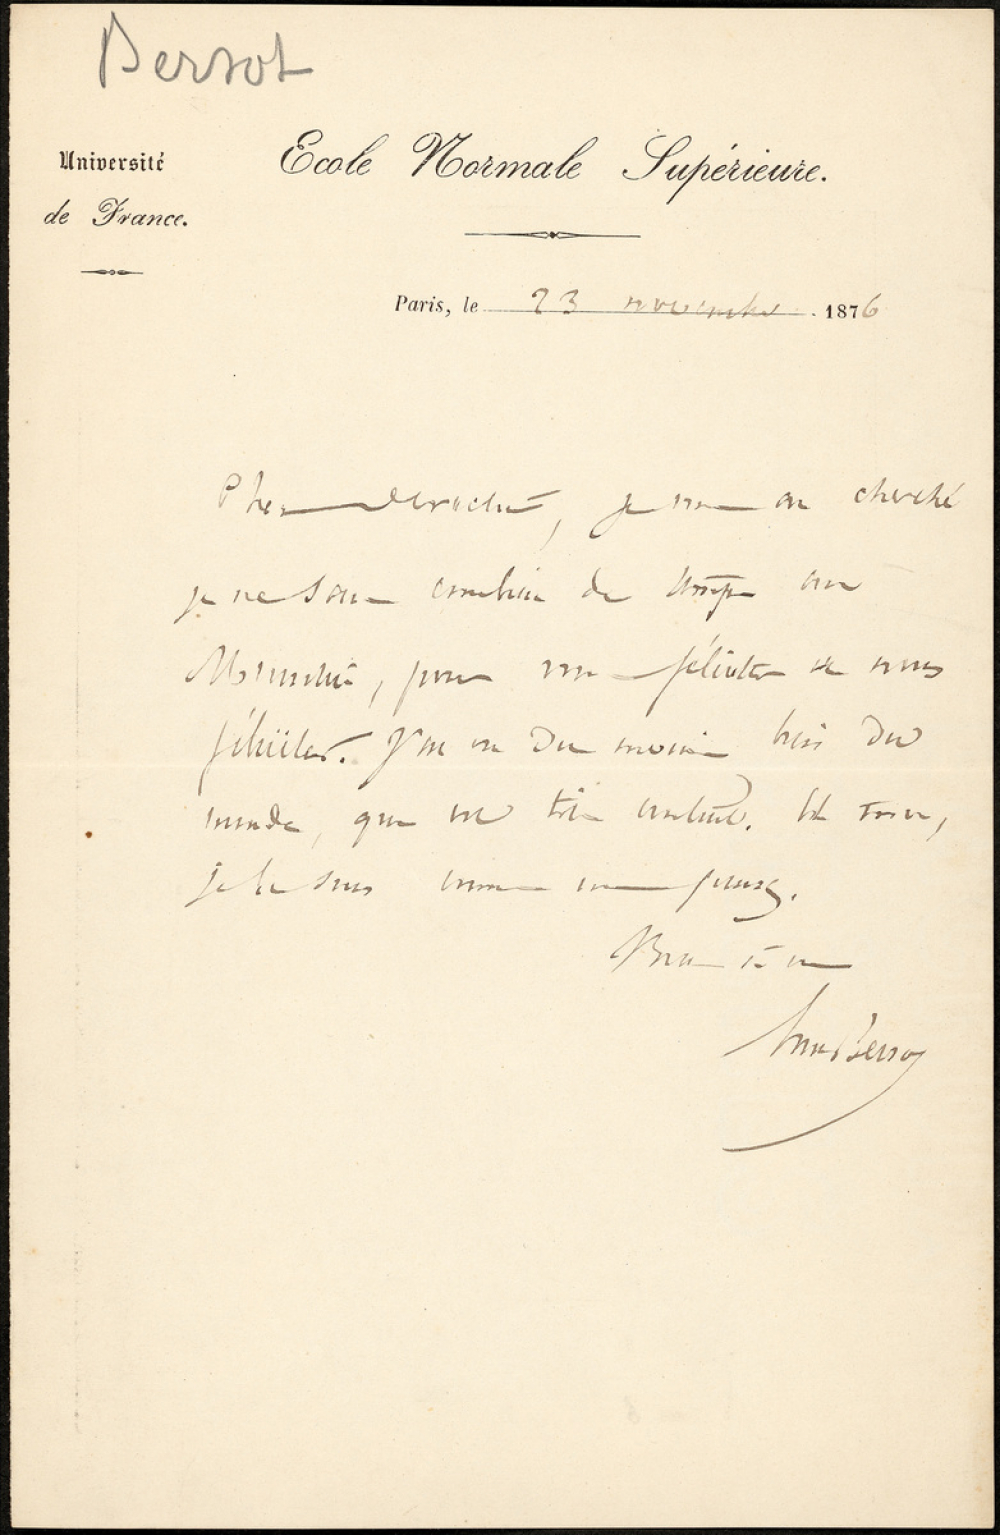 Bersot
Université
de France.
Ecole Normale Supérieure.
Paris, le 23 novembre 1876
Cher je vous ai cherché
je ne sais combien de temps au
Ministère, pour vous féliciter et nous
féliciter. J'ai vu du moins
monde, que est très content. Et moi,
je le suis comme vous pensez.
Bien à vous
Bersot